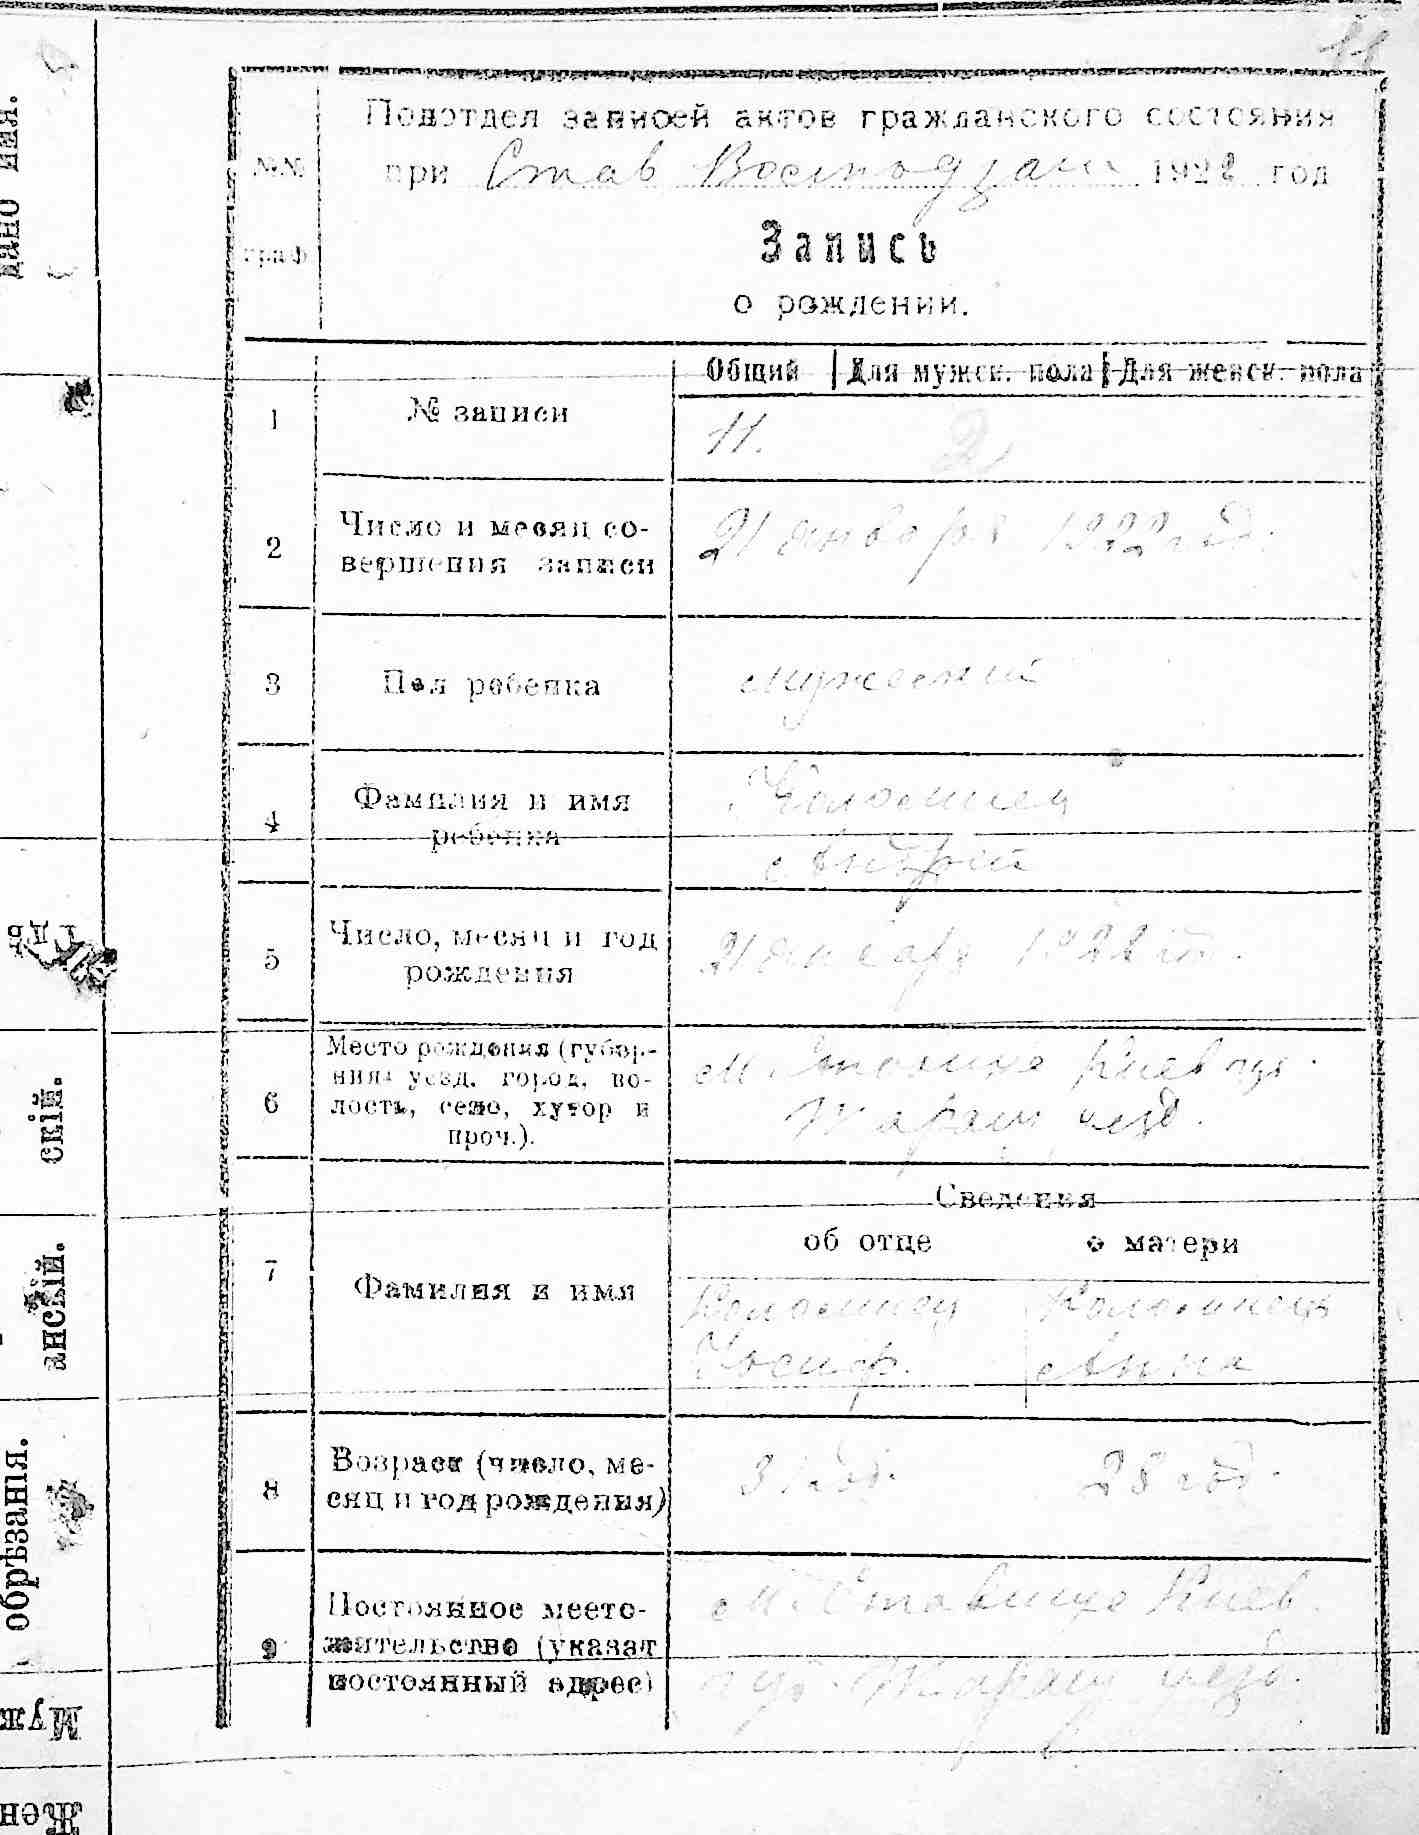 11
Подотдел записей актов гражданского состояния
№№ при Став 1922 год
граф
Запись
о рождении.
Общий Для мужск. пола Для женск. пола
1 № записи 11. 2
2 Число и месяц со-
вершения записи 21 января 1922 год.
3 Пол ребенка мужеский
4 Фамилия и имя
ребенка Коломиец
Андрей
5 Число, месяц и год
рождения 21 января 1922
6 Место рождения (губер-
ния, уезд, город, во-
лость, село, хутор и
проч.). М. Ставище Киев губ.
Таращ уезд.
Сведения
об отце о матери
7 Фамилия и имя
Коломиец Коломиец
Иосиф. Анна
8 Возраст (число, ме-
сяц и год рождения) 31 год. 25 год.
9 Постоянное место-
жительство (указат
постоянный адрес) М. Ставище Киев.
губ. Таращ уезд.
дано имя.
скій.
анскій.
обрѣзанія.
Муж
Жен